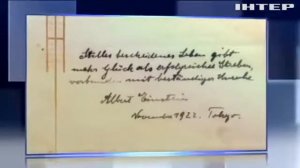 ІНТЕР
Stilles bescheidenes Leben gibt
mehr Glück als erfolgreiches Streben,
verbunden mit beständiger Unruhe
Albert Einstein
November 1922. Tokyo.